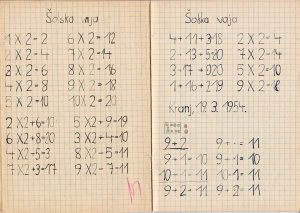 Šolska vaja
1 X 2 = 2 6 X 2 = 12
2 X 2 = 4 7 X 2 = 14
3 X 2 = 6 8 X 2 = 16
4 X 2 = 8 9 X 2 = 18
5 X 2 = 10 10X 2 = 20
2 X2+6=10 5 X2+9=19
6 X2+8=20 3 X2+4=10
4 X2-5=3 8 X2-7=
7 X2+3=17 9 X2-7=11
Šolska vaja
4+11+3=18 2 X 2=4
2 · 13+5=20 7 X 2=14
3+17+0=20 5 X 2=10
1+16+2=19 9 X 2=18
Kranj, 19. 3. 1954.
9+2 9+ · = 11
9+1=10 9+1=10
10+1=11 10+1=11
9+2=11 9+2=11